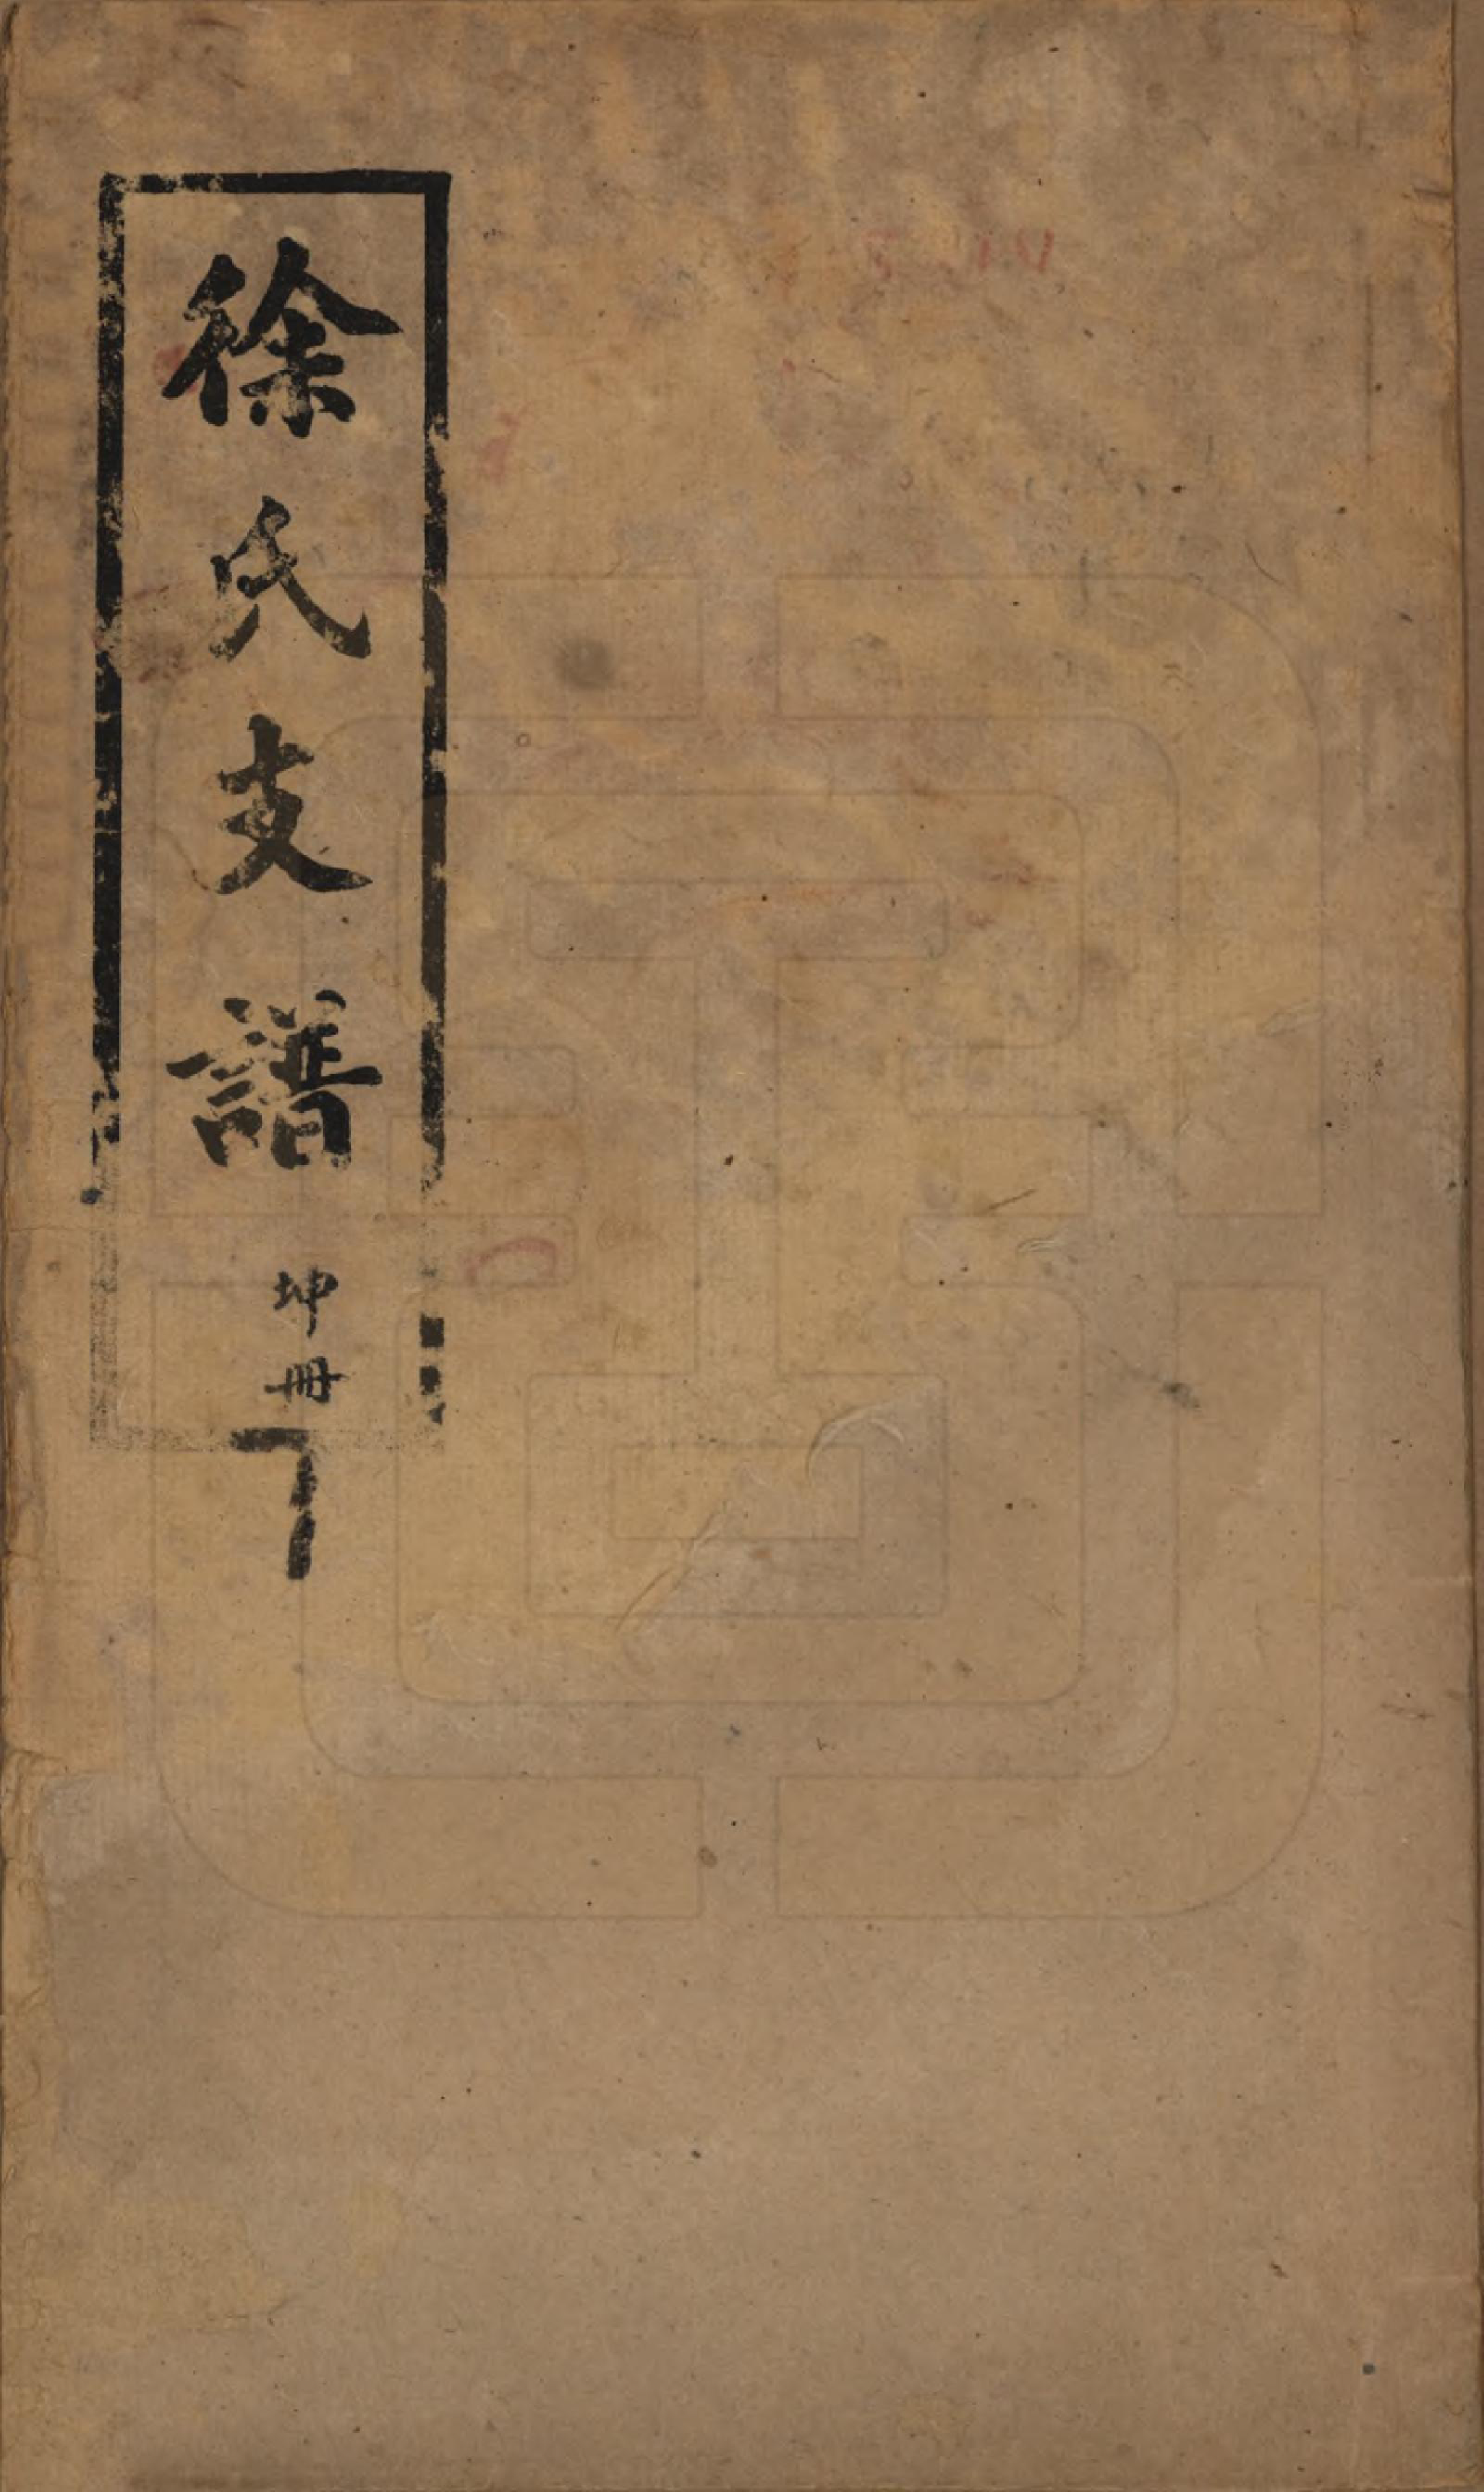 徐氏支譜
坤冊